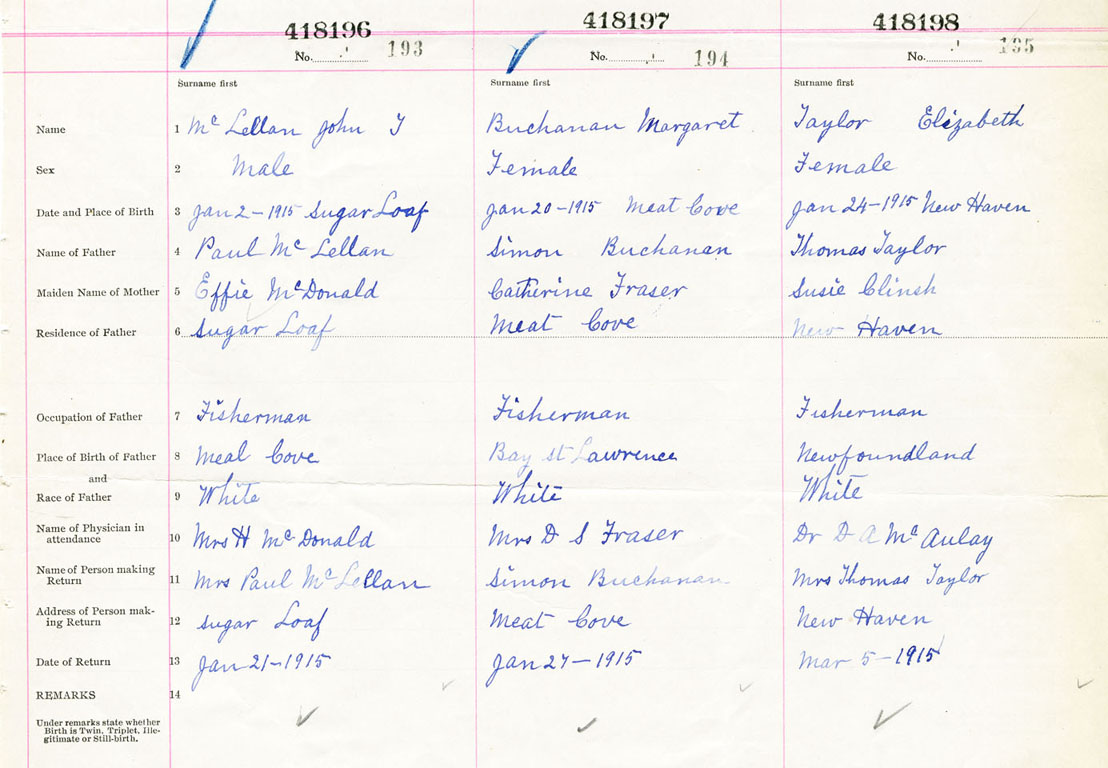 418196 418197 418198
No. 193 No. 194 No. 195
Surname first Surname first Surname first
Name 1 Mc Lellan John J Buchanan Margaret Taylor Elizabeth
Sex 2 Male Female Female
Date and Place of Birth 3 Jan 2-1915 Sugar Loaf Jan 20-1915 Meat Cove Jan 24-1915 New Haven
Name of Father 4 Paul Mc Lellan Simon Buchanan Thomas Taylor
Maiden Name of Mother 5 Effie McDonald Catherine Fraser Susie Clinsh
Residence of Father 6 Sugar Loaf Meat Cove New Haven
Occupation of Father 7 Fisherman Fisherman Fisherman
Place of Birth of Father 8 Meal Cove Bay St Lawrence Newfoundland
and
Race of Father 9 White White White
Name of Physician in
attendance 10 Mrs H McDonald Mrs D S Fraser Dr D A McAulay
Name of Person making
Return 11 Mrs Paul McLellan Simon Buchanan Mrs Thomas Taylor
Address of Person mak-
ing Return 12 Sugar Loaf Meat Cove New Haven
Date of Return 13 Jan 21-1915 Jan 27-1915 Mar 5-1915
REMARKS 14
Under remarks state whether
Birth is Twin, Triplet, Ille-
gitimate or Still-birth.